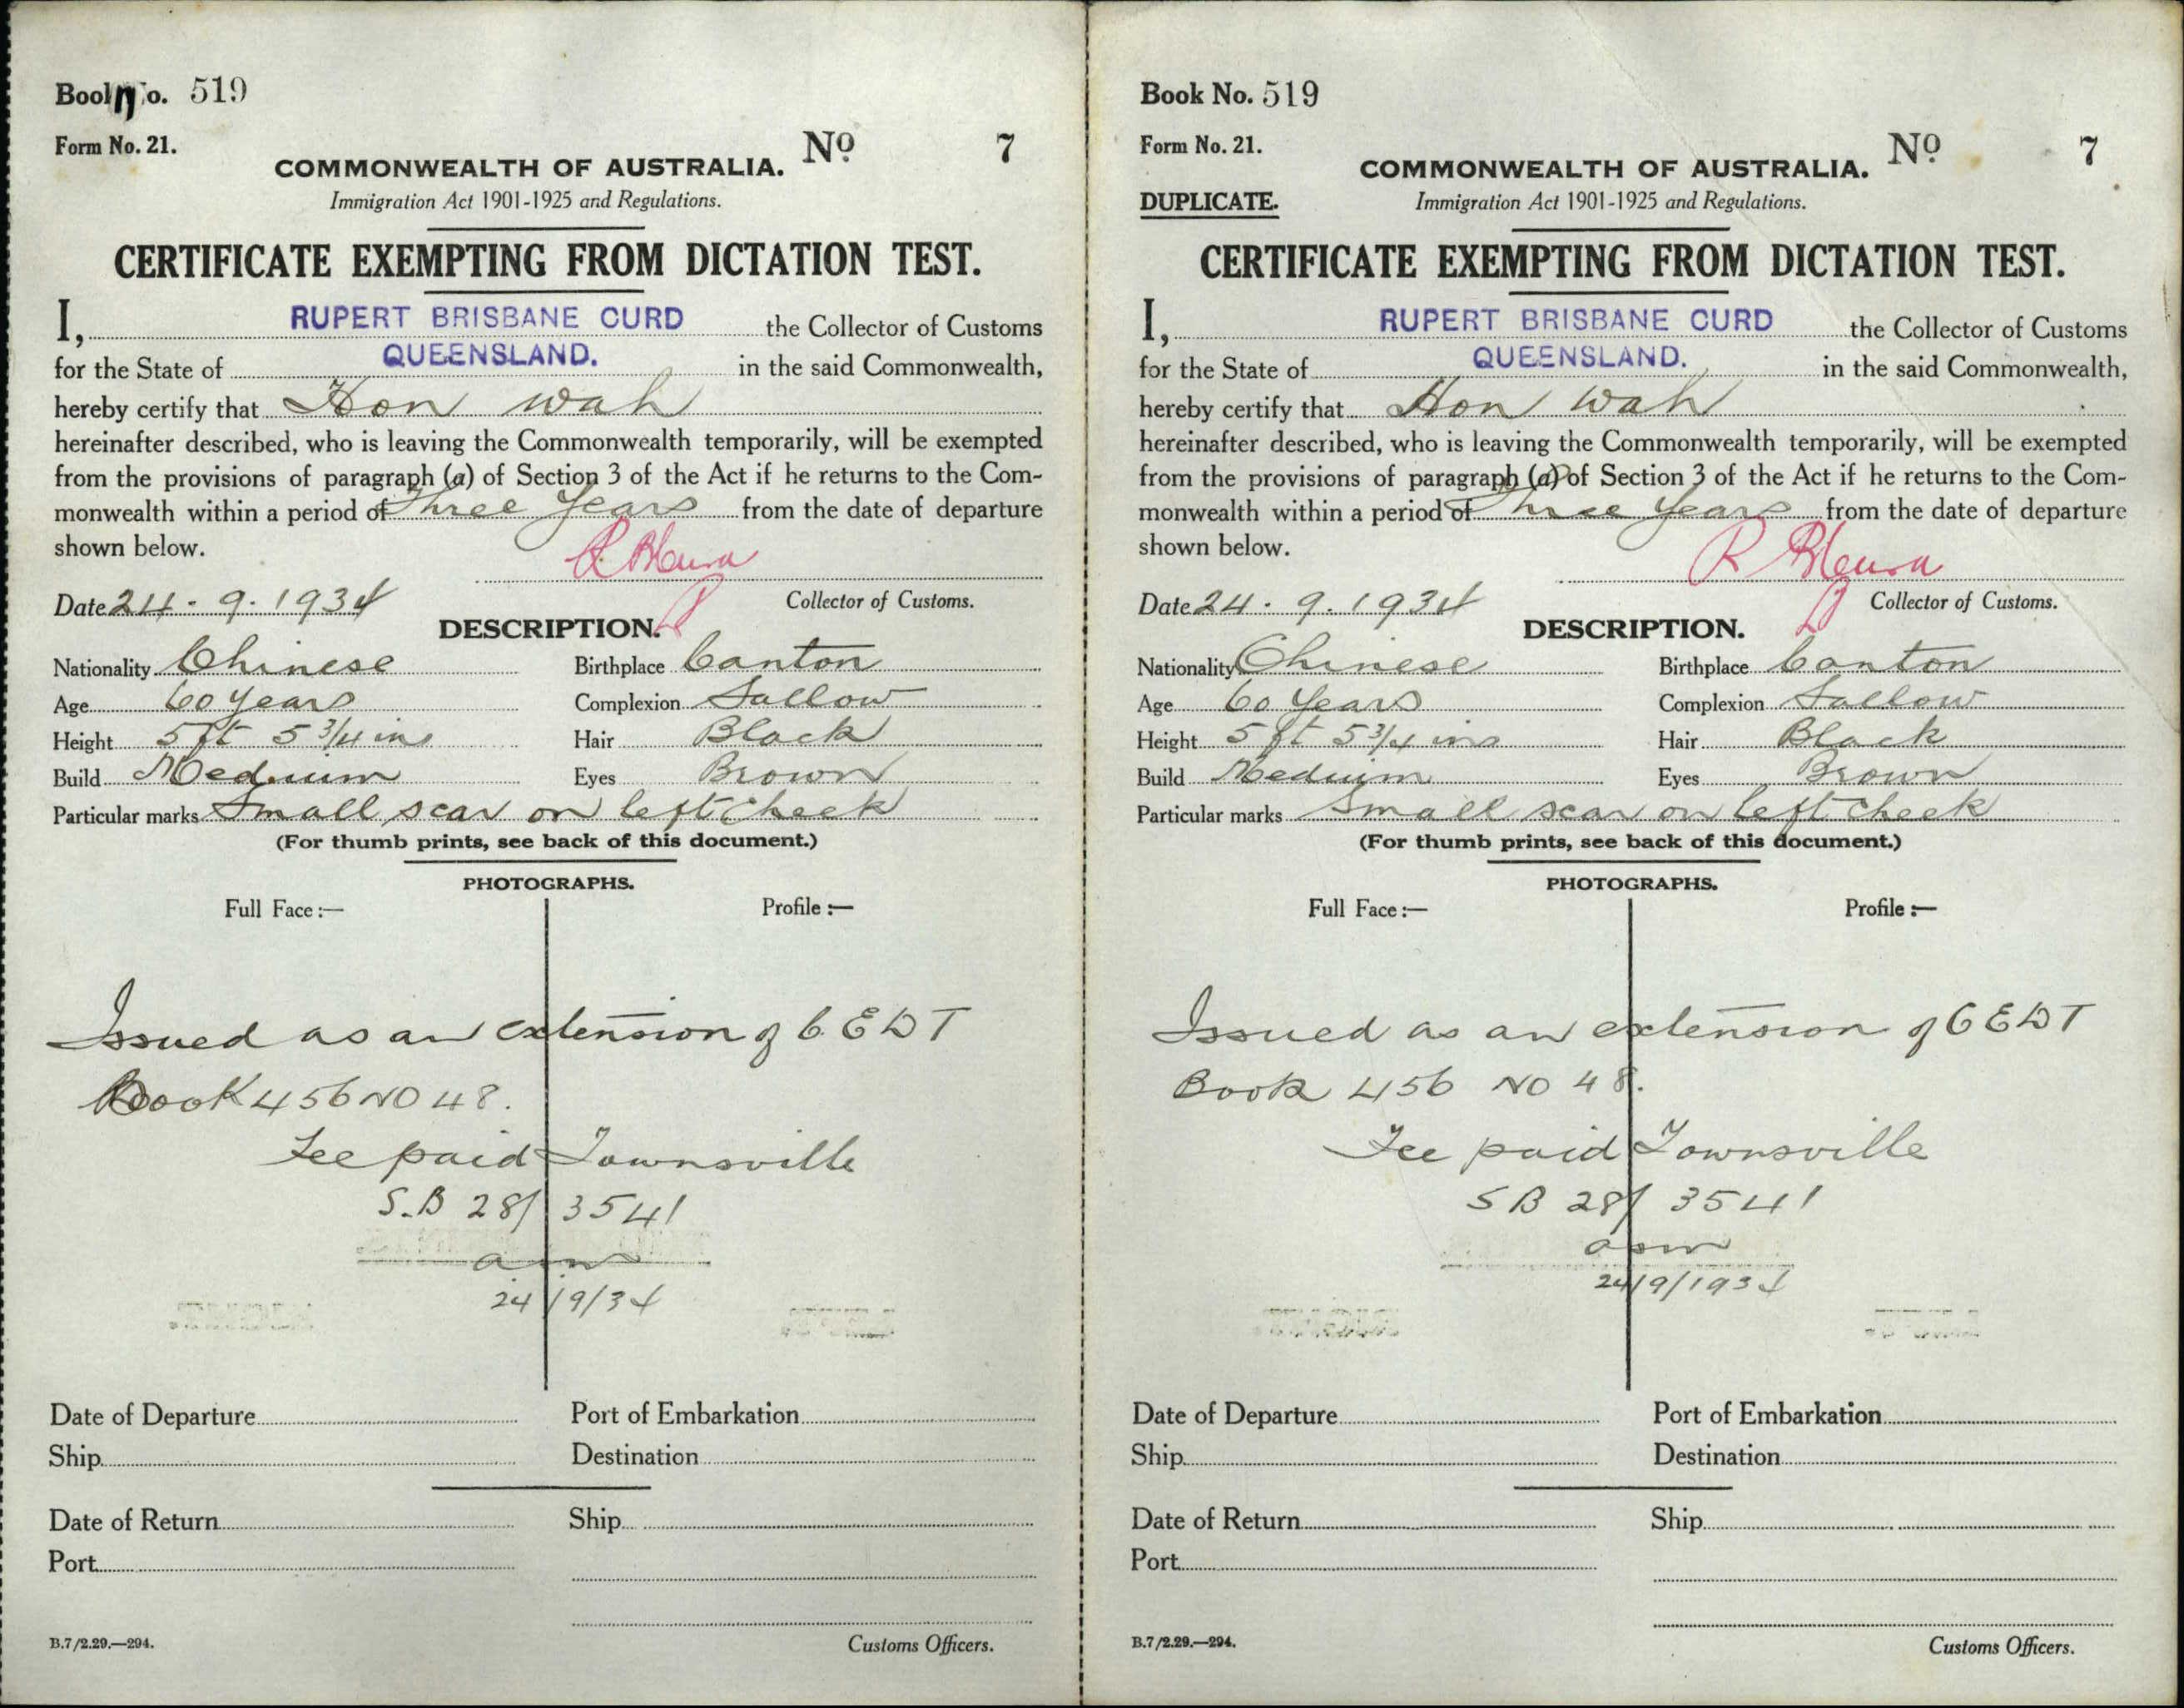 Book No. 519
Form No. 21.
COMMONWEALTH OF AUSTRALIA. Nº 7
Immigration Act 1901-1925 and Regulations.
CERTIFICATE EXEMPTING FROM DICTATION TEST.
I, RUPERT BRISBANE CURD the Collector of Customs
for the State of QUEENSLAND. in the said Commonwealth,
hereby certify that Hon Wah
hereinafter described, who is leaving the Commonwealth temporarily, will be exempted
from the provisions of paragraph (a) of Section 3 of the Act if he returns to the Com-
monwealth within a period of Three Years from the date of departure
shown below.
Date 24.9.1934 Collector of Customs.
DESCRIPTION.
Nationality Chinese Birthplace Canton
Age 60 years Complexion Sallow
Height 5 ft 5 3/4 ins Hair Black
Build Medium Eyes Brown
Particular marks Small scar on left cheek
(For thumb prints, see back of this document.)
PHOTOGRAPHS.
Full Face :— Profile :—
Issued as an extension of C.EDT
Book 456 NO 48.
Fee paid Townsville
S.B 28/3541
24/9/34
Date of Departure Port of Embarkation
Ship Destination
Date of Return Ship
Port
B.7/2.29.—294. Customs Officers.
Book No. 519
Form No. 21.
COMMONWEALTH OF AUSTRALIA. Nº 7
DUPLICATE. Immigration Act 1901-1925 and Regulations.
CERTIFICATE EXEMPTING FROM DICTATION TEST.
I, RUPERT BRISBANE CURD the Collector of Customs
for the State of QUEENSLAND. in the said Commonwealth,
hereby certify that Hon Wah
hereinafter described, who is leaving the Commonwealth temporarily, will be exempted
from the provisions of paragraph (a) of Section 3 of the Act if he returns to the Com-
monwealth within a period of Three Years from the date of departure
shown below.
Date 24.9.1934 Collector of Customs.
DESCRIPTION.
Nationality Chinese Birthplace Canton
Age 60 Years Complexion Sallow
Height 5 ft 5 3/4 ins Hair Black
Build Medium Eyes Brown
Particular marks Small scar on left cheek
(For thumb prints, see back of this document.)
PHOTOGRAPHS.
Full Face :— Profile :—
Issued as an extension of CEDT
Book 456 NO 48.
Fee paid Townsville
S B 28/3541
24/9/1934
Date of Departure Port of Embarkation
Ship Destination
Date of Return Ship
Port
B.7/2.29.—294. Customs Officers.